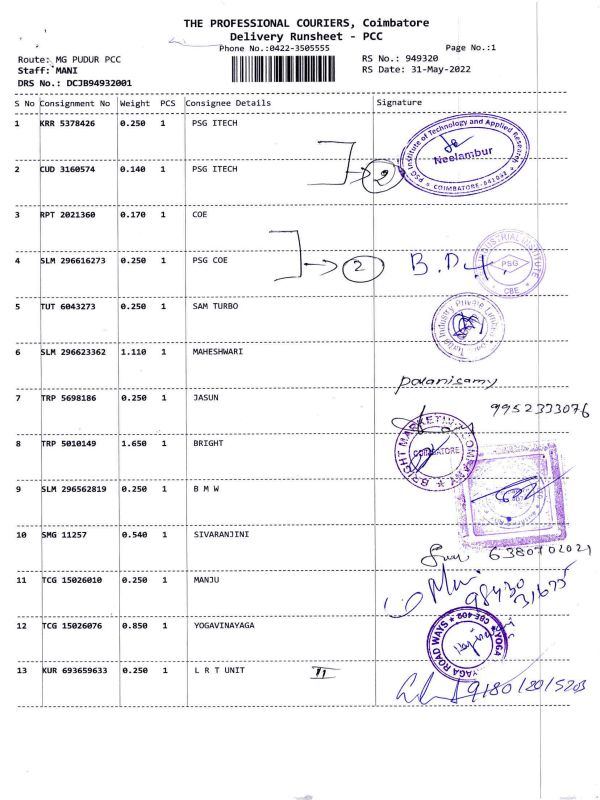 THE PROFESSIONAL COURIERS, Coimbatore
Delivery Runsheet - PCC
Phone No.:0422-3505555
Page No.:1
Route: MG PUDUR PCC
RS No.: 949320
Staff: MANI
RS Date: 31-May-2022
DRS No.: DCJB94932001
S No Consignment No Weight PCS Consignee Details Signature
1 KRR 5378426 0.250 1 PSG ITECH
PSG Institute of Technology and Applied Research
Neelambur
COIMBATORE-641062
2 CUD 3160574 0.140 1 PSG ITECH
2
3 RPT 2021360 0.170 1 COE
4 SLM 296616273 0.250 1 PSG COE
2
B.D
INDUSTRIAL INSTITUTE
PSG
CBE
5 TUT 6043273 0.250 1 SAM TURBO
Turbo Industry Private Limited
6 SLM 296623362 1.110 1 MAHESHWARI
palanisamy
7 TRP 5698186 0.250 1 JASUN
9952333076
8 TRP 5010149 1.650 1 BRIGHT
BRIGHT MARKETING COMPANY
COIMBATORE
9 SLM 296562819 0.250 1 B M W
10 SMG 11257 0.540 1 SIVARANJINI
6380702021
11 TCG 15026010 0.250 1 MANJU
98430
31675
12 TCG 15026076 0.850 1 YOGAVINAYAGA
YAGA ROAD WAYS * CBE-409 * YOGA
13 KUR 693659633 0.250 1 L R T UNIT II